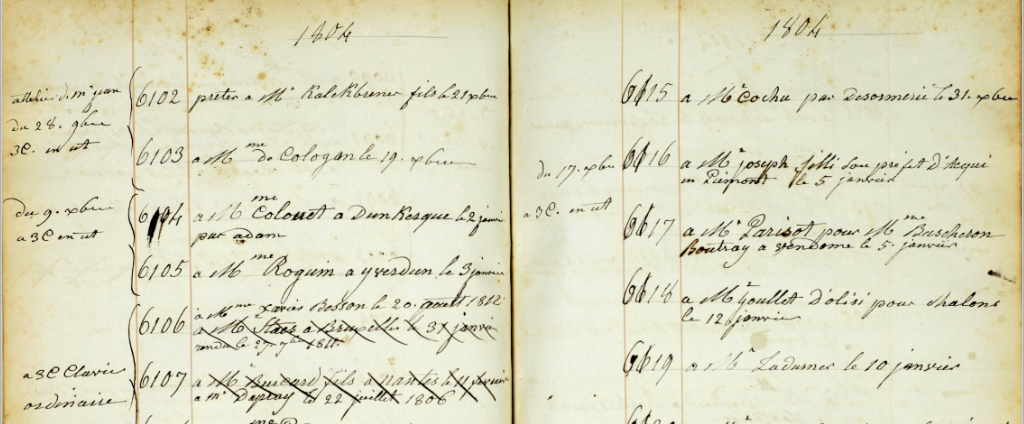 1804
attelier de Mr jean
du 28. 9bre
3C. en ut
6102 preter a Mr Kalkbrener fils le 21 xbre
6103 a Mme de Cologan le 19. xbre
du 9. xbre
a 3C en ut
6104 a Mme Colonet a Dunkerque le 2 janvier
par adam
6105 a Mme Roguin a yverdun le 3 janvier
6106 à Mme Xavier Bosson le 20. aout 1812
a M a Bruxelles le 31 janvier
rendu le 27. 7bre 1811
a 3C Clavier
ordinaire
6107 a Mr fils a nantes le 11 fevrier
a mr le 22 juillet 1806
1804
6615 a Mr Cochu par Desormerie le 31. xbre
du 17. xbre
a 3C. en ut
6616 a Mr joseph filli Sou prefet d'Acqui
en Piémont le 5 janvier
6617 a Mr Parisot pour Mme Bascheron
Boutray a vendome le 5. janvier
6618 a Mr Goullet D'olisi pour chalons
le 12 janvier
6619 a Mr Ladurner le 10 janvier